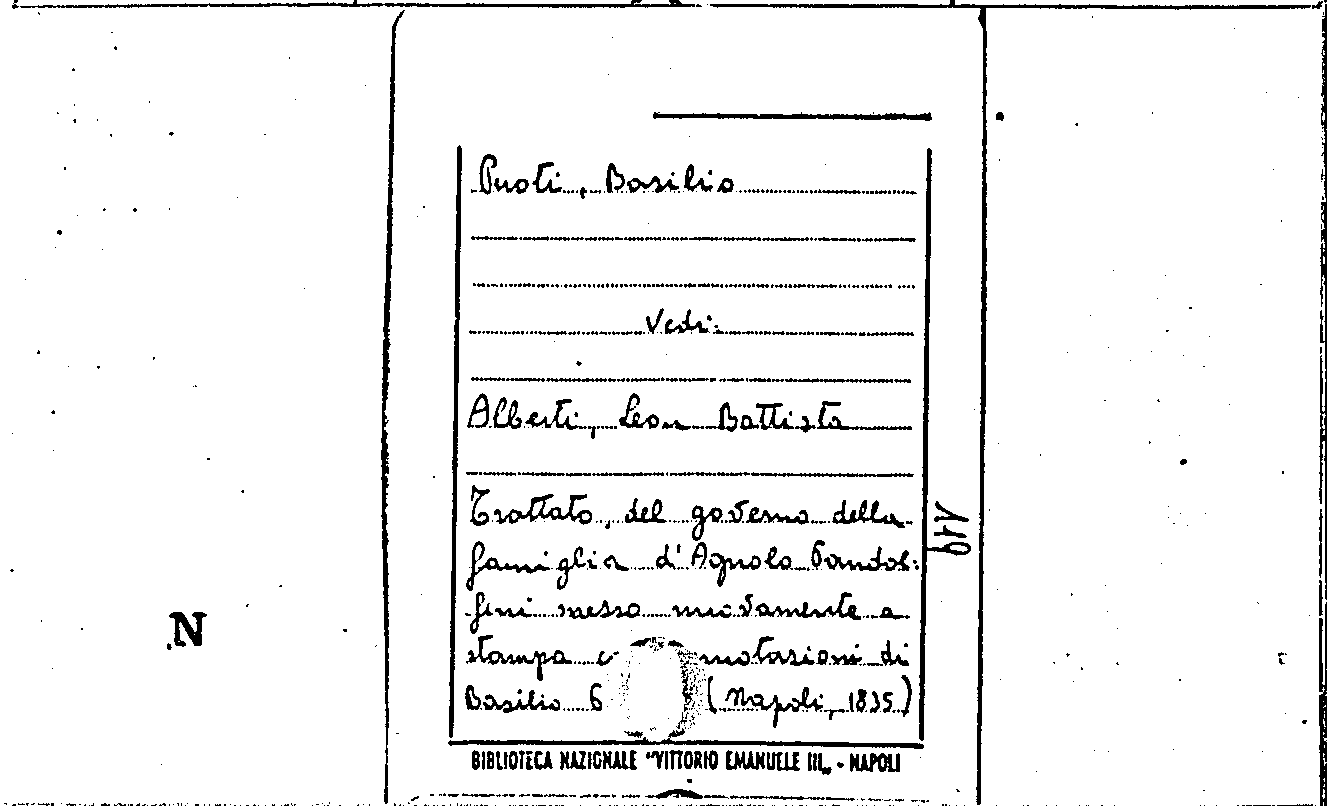 Puoti, Basilio
Vedi:
Alberti, Leon Battista
Trattato, del governo della
famiglia d'Agnolo Pandol-
fini messo nuovamente a
stampa c notazioni di
Basilio (Napoli, 1835)
BIBLIOTECA NAZIONALE "VITTORIO EMANUELE III„ - NAPOLI
N